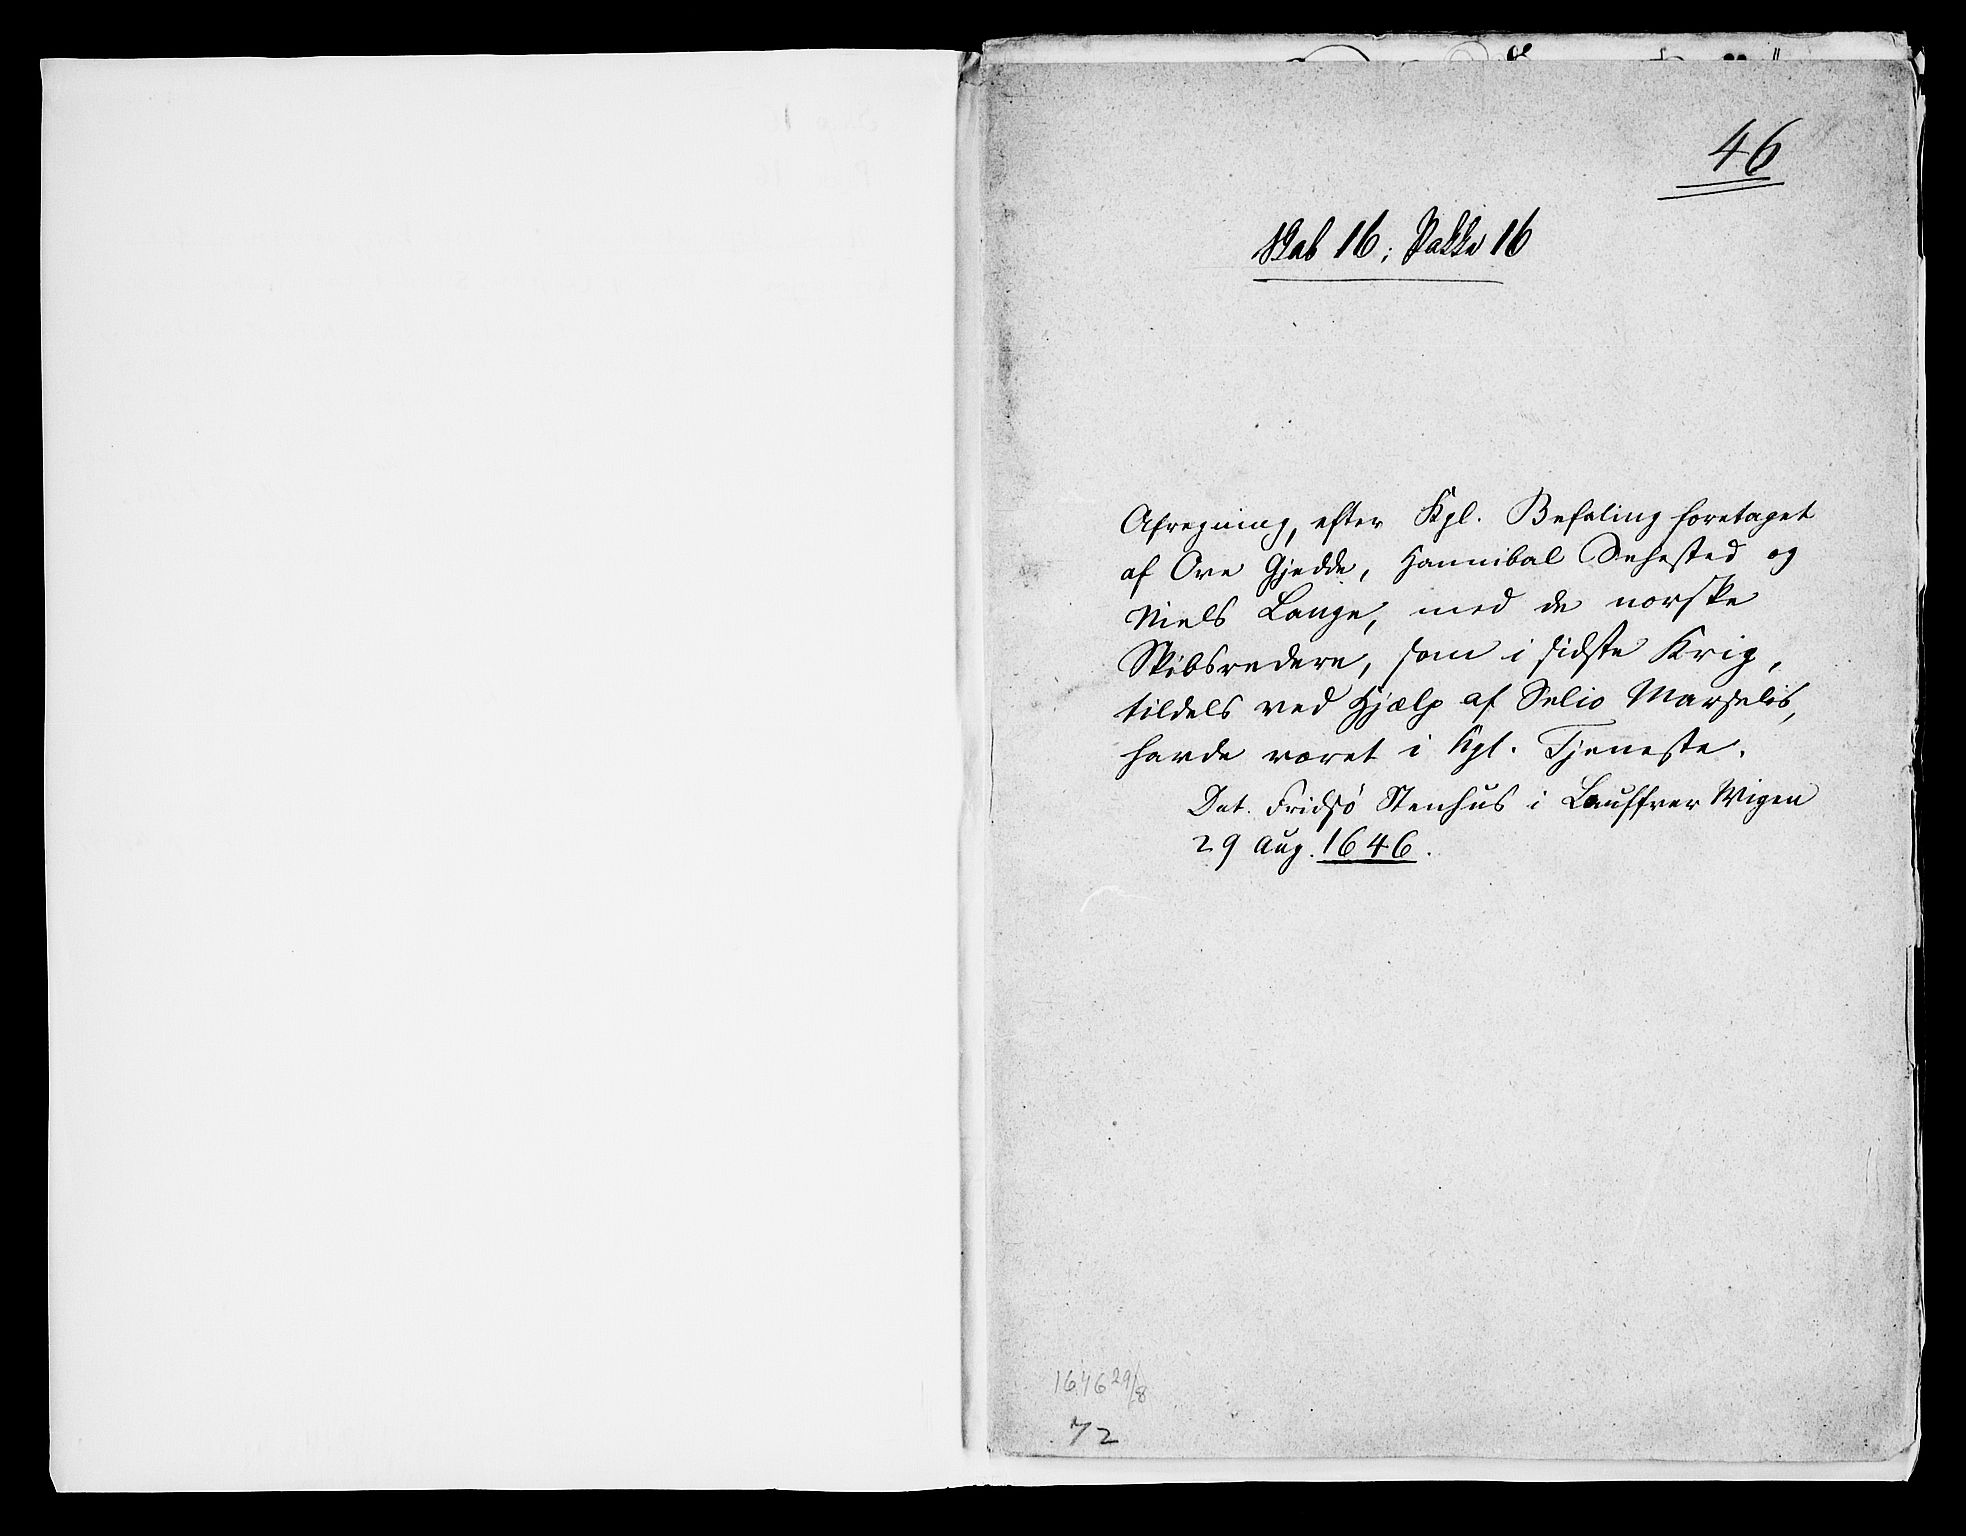 46
Skab 16; Pakke 16
Afregning, efter Kgl. Befaling foretaget
af Ove Gjedde, Hannibal Sehested og
Niels Lange, med de norske
Skibsredere, som i sidste Krig,
tildels ved Hjælp af Selio Marselis,
havde været i Kgl. Tjeneste.
Dat. Fridsö Stenhus i Lauffver Wigen
29 Aug. 1646.
1646 29/8
72